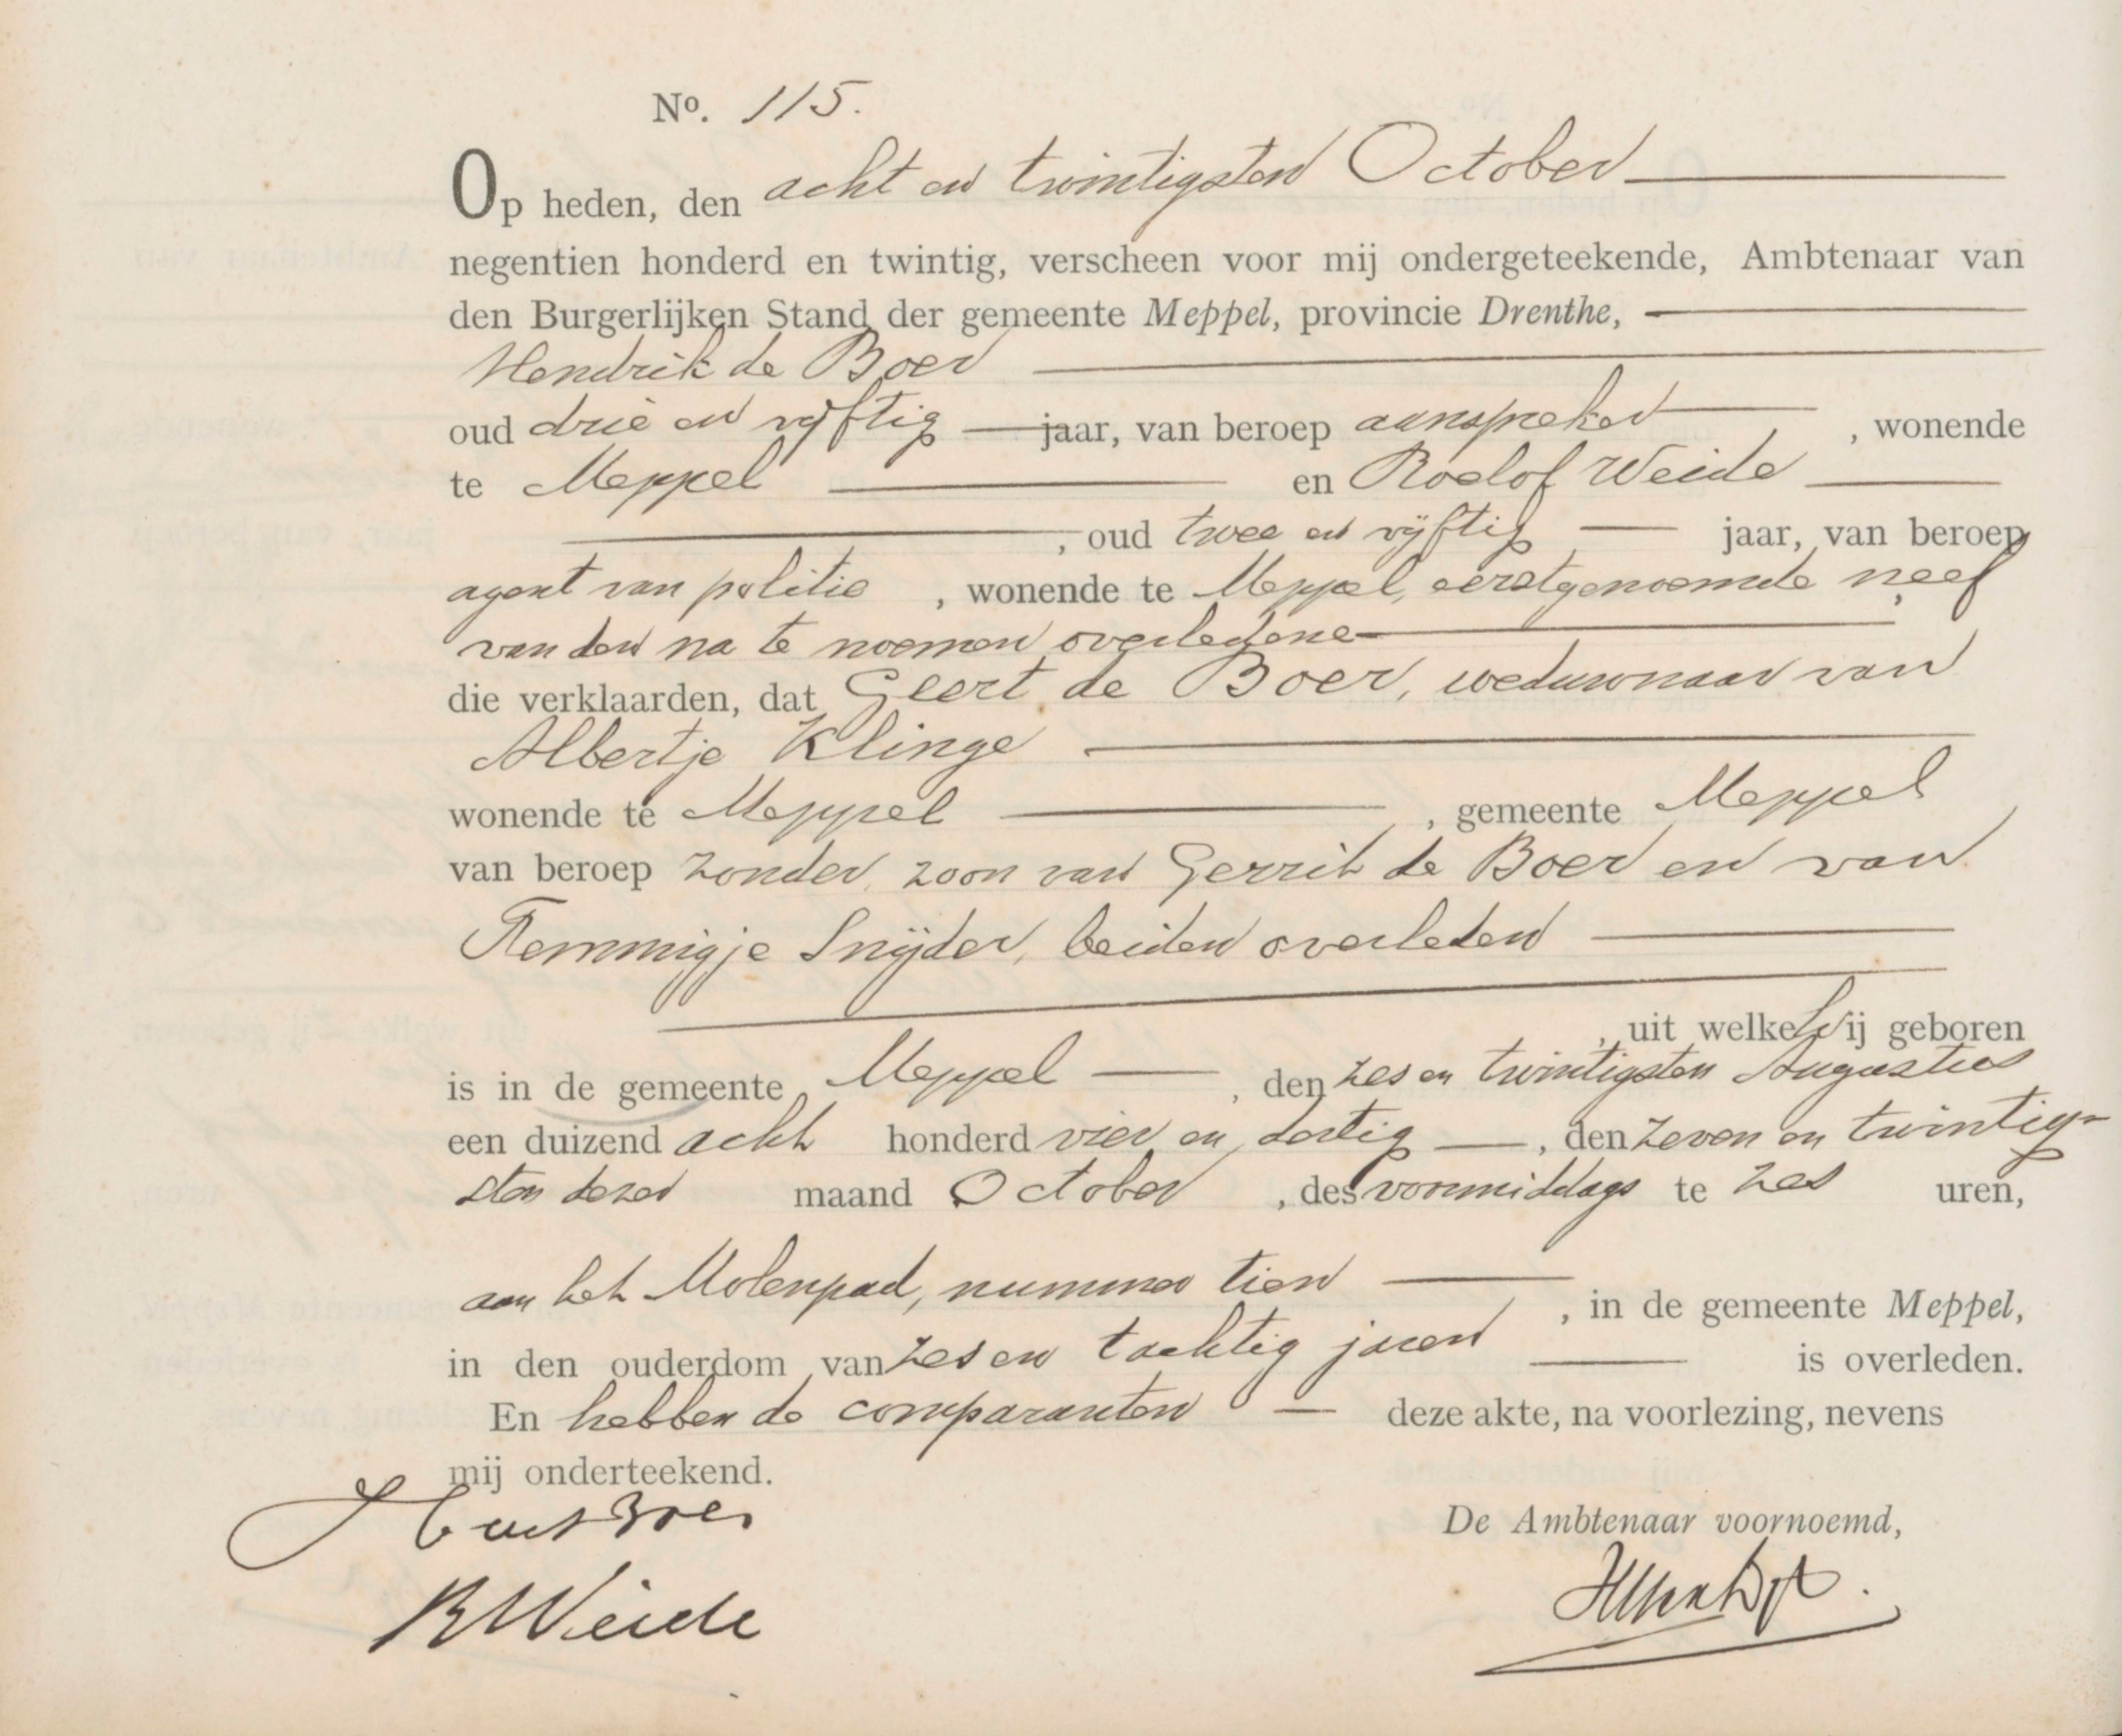 No. 115.
Op heden, den acht en twintigsten October
negentien honderd en twintig, verscheen voor mij ondergeteekende, Ambtenaar van
den Burgerlijken Stand der gemeente Meppel, provincie Drenthe,
Hendrik de Boer
oud drie en vijftig jaar, van beroep aanspreker, wonende
te Meppel en Roelof Weide
, oud twee en vijftig jaar, van beroep
agent van politie, wonende te Meppel, eerstgenoemde neef
van den na te noemen overledene
die verklaarden, dat Geert de Boer, weduwnaar van
Albertje Klinge
wonende te Meppel, gemeente Meppel
van beroep zonder, zoon van Gerrit de Boer en van
Femmigje Snijder, beiden overleden
, uit welke hij geboren
is in de gemeente Meppel, den zes en twintigsten Augustus
een duizend acht honderd vier en dertig, den zeven en twintig-
sten dezer maand October, des voormiddags te zes uren,
aan het Molenpad, nummer tien, in de gemeente Meppel,
in den ouderdom van zes en tachtig jaren is overleden.
En hebben de comparanten deze akte, na voorlezing, nevens
mij onderteekend.
De Ambtenaar voornoemd,
R Weide